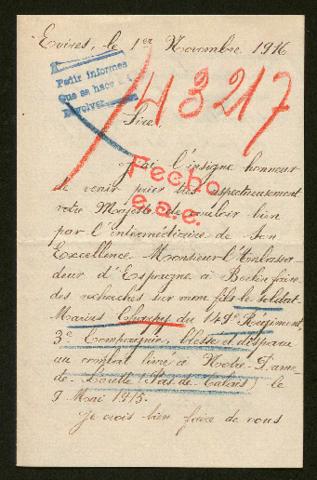 Evires, le 1er Novembre 1916
Pedir informes
Que se hace
Devolver
43217
Sire,
J'ai l'insigne honneur
Fecho
de venir prier très respectueusement
e.a.e.
votre Majesté de vouloir bien
par l'intermédiaire de Son
Excellence Monsieur l'Ambassa-
deur d'Espagne à Berlin faire
des recherches sur mon fils le soldat
Marius Charpy du 149e Régiment,
3e Compagnie, blessé et disparu
au combat livré à Notre-Dame-
de-Lorette (Pas-de-Calais) le
9 Mai 1915.
Je crois bien faire de vous